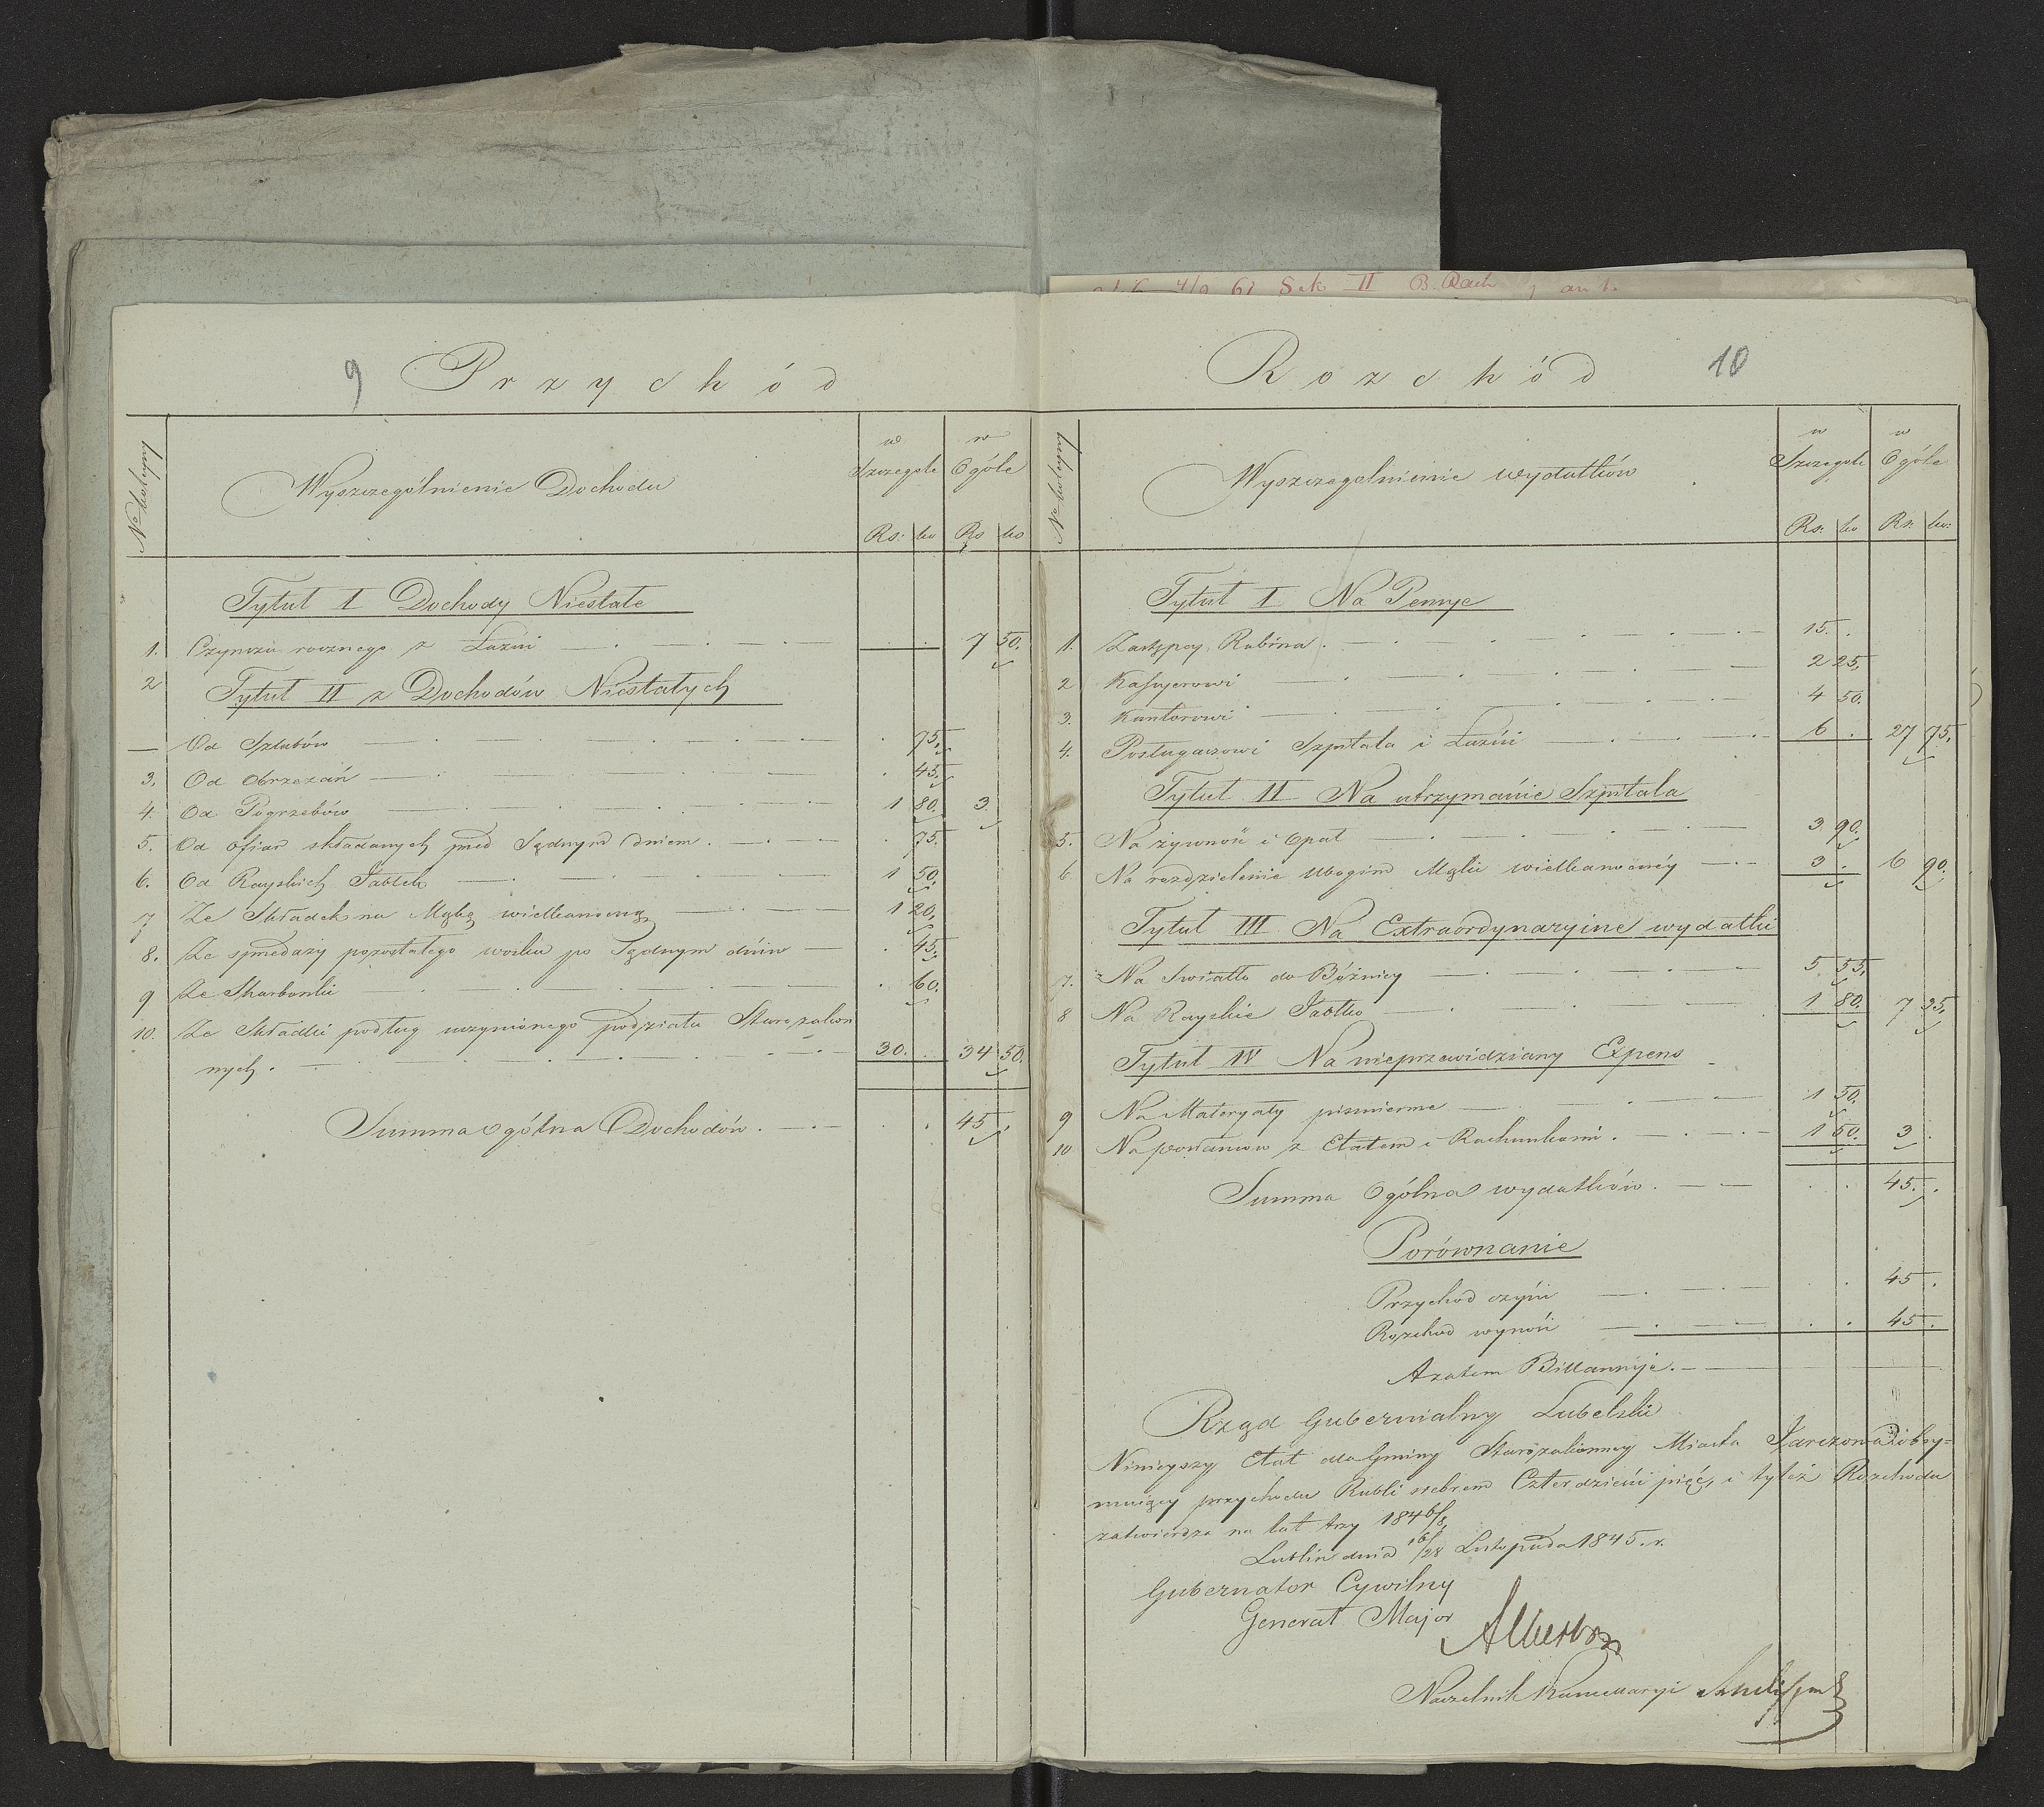 9 Przychód
No kolejny
Wyszczególnienie Dochodu
w Szczegole
w Ogóle
Rs: ko Rs ko
Tytuł I Dochody Niestałe
1. Czynszu rocznego z Łaźni 7 50.
2 Tytuł II z Dochodów Niestałych
— Od Szlubów . 75.
3. Od Obrzezań . 45.
4. Od Pogrzebów 1 80. 3.
5. Od ofiar składanych przed Sądnym Dniem . 75.
6. Od Rayskich Jabłek 1 50.
7 Ze Składek na Mąkę wielkanocną 1 20.
8. Ze sprzedaży pozostałego wosku po Sądnym dniu . 45.
9 Ze Skarbonki . 60.
10. Ze Składki podług uczynionego podziału Starozakon
nych. 30. . 34 50.
Summa ogólna Dochodów. . . 45 .
Rozchód 10
No kolejny
Wyszczegolnienie wydatków
w Szczegole
w Ogóle
Rs. ko Rs. ko:
Tytuł I Na Pensye
1. Zastępcy Rabina. 15. .
2 Kassyerowi 2 25.
3. Kantorowi 4 50.
4. Posługaczowi Szpitala i Łaźni 6 . 27 75.
Tytuł II Na utrzymanie Szpitala
5. Na żywność i Opał 3 90.
6 Na rozdzielenie Ubogim Mąki wielkanocnéy 3 . 6 90.
Tytuł III Na Extraordynaryine wydatki
7. Na Swiatło do Bóżnicy 5 55.
8 Na Rayskie Jabłko 1 80. 7 35.
Tytuł IV Na nieprzewidziany Expens
9 Na Materyały piśmienne 1 50.
10 Na posłańców z Etatem i Rachunkami. 1 50. 3 .
Summa Ogólna wydatków. . . 45. .
Porównanie
Przychod czyni . . 45 .
Rozchod wynosi . . 45 .
Azatem Billansuje.
Rząd Gubernialny Lubelski
Ninieyszy Etat dla Gminy Starozakonney Miasta Tarczowa oby=
mujący przychodu Rubli srebrem Czterdzieści pięć, i tyleż Rozchodu
zatwierdza na lat trzy 1846/8
Lublin dnia 16/28 Listopada 1845. r.
Gubernator Cywilny
Generał Major
Albertow
Naczelnik Kancellaryi